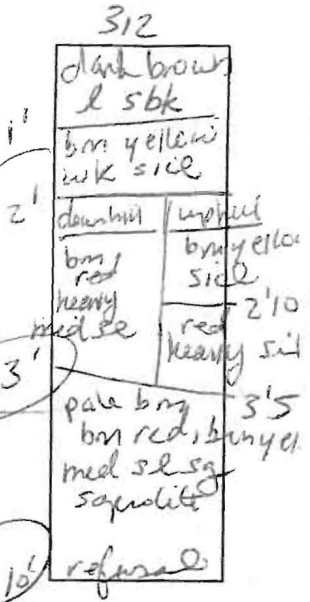 312
dark brown
l sbk
1'
brn yellow
wk sicl
2'
downhill
uphill
brn,
red
heavy
brn yello
sicl
2'10
red
heavy
3'
3'5
pale brn
brn red, brn yel
med
saprolite
10'
refusal